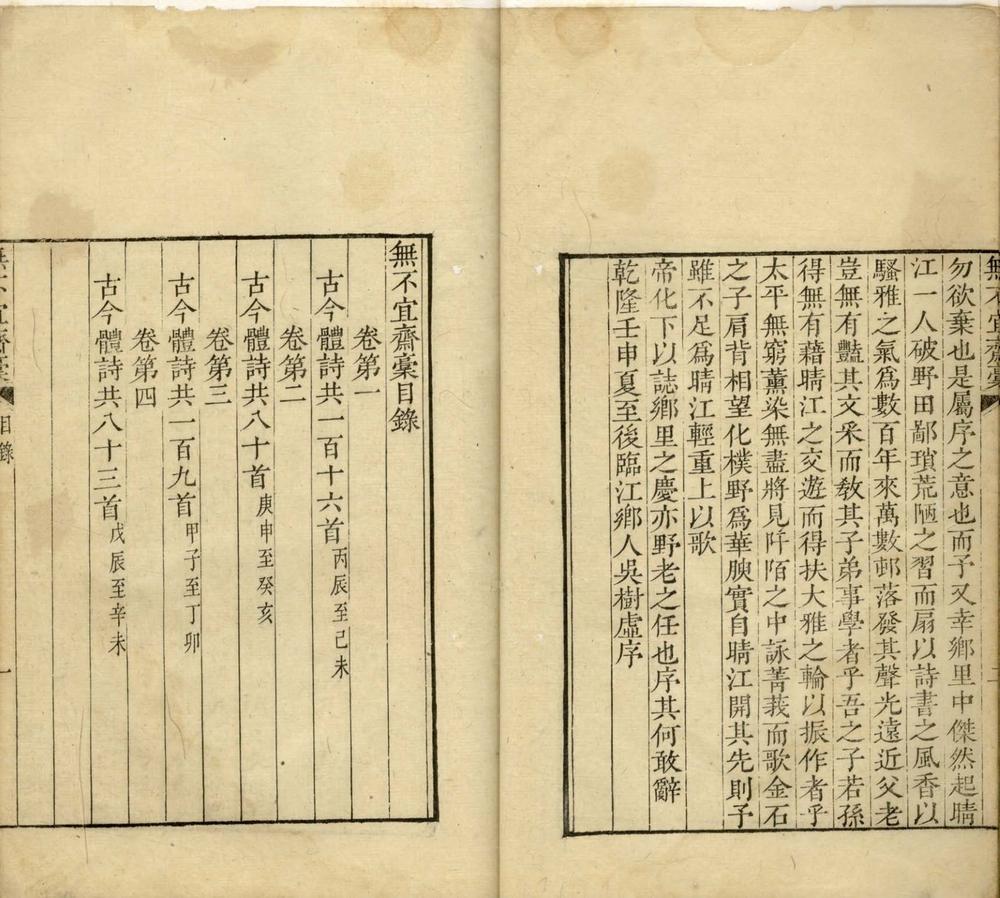 無不宜齋稾
二
勿欲棄也是屬序之意也而予又幸鄉里中傑然起晴
江一人破野田鄙瑣荒陋之習而扇以詩書之風香以
騷雅之氣爲數百年來萬數邨落發其聲光遠近父老
豈無有豔其文采而敎其子弟事學者乎吾之子若孫
得無有藉晴江之交遊而得扶大雅之輪以振作者乎
太平無窮薰染無盡將見阡陌之中詠菁莪而歌金石
之子肩背相望化樸野爲華腴實自晴江開其先則予
雖不足爲晴江輕重上以歌
帝化下以誌鄉里之慶亦野老之任也序其何敢辭
乾隆壬申夏至後臨江鄉人吳樹虛序
無不宜齋稾目錄
卷第一
古今體詩共一百十六首丙辰至己未
卷第二
古今體詩共八十首庚申至癸亥
卷第三
古今體詩共一百九首甲子至丁卯
卷第四
古今體詩共八十三首戊辰至辛未
無不宜齋稾
目錄
一